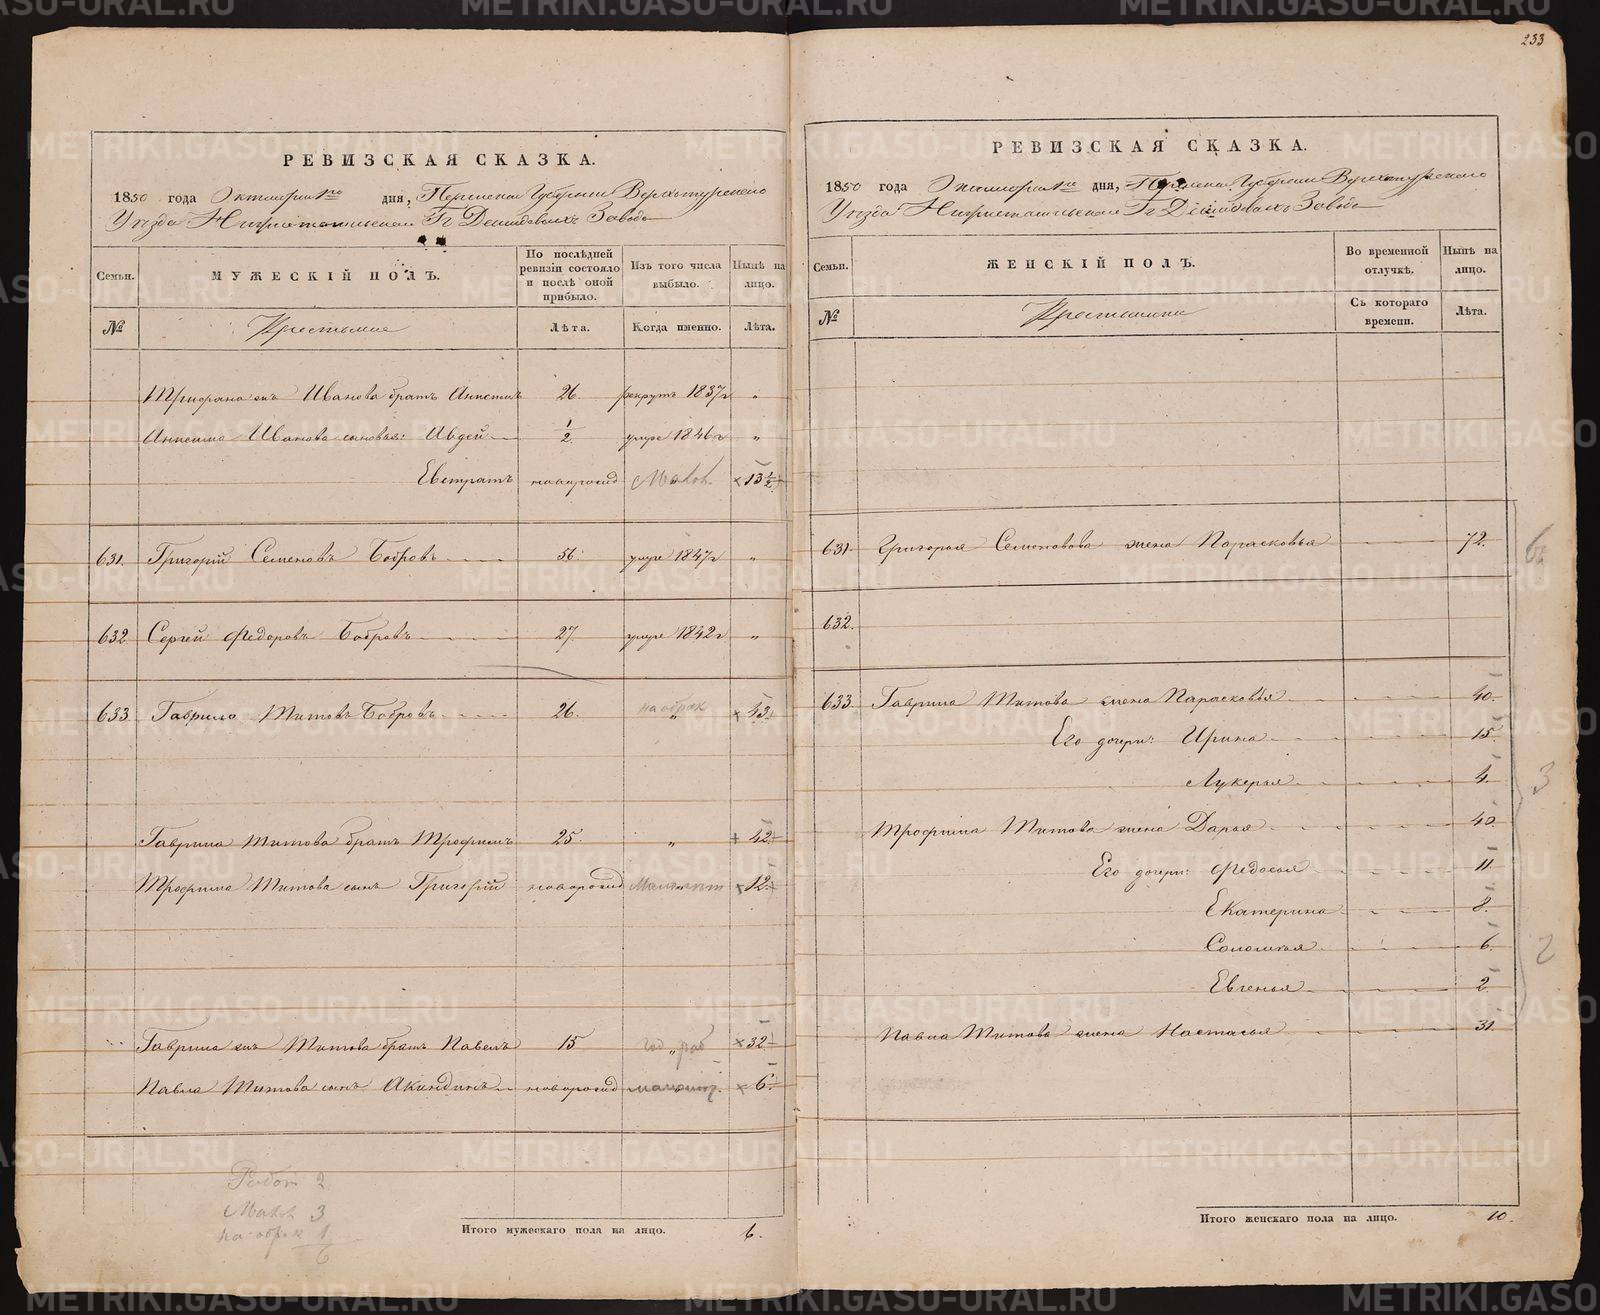 233
РЕВИЗСКАЯ СКАЗКА.
1850 года Октября 1го дня, Пермской Губернии Верхотурскаго
Уезда Нижнетагильскаго Гг Демидовыхъ Завода
Семьи. МУЖЕСКІЙ ПОЛЪ. По послѣдней ревизіи состояло и послѣ оной прибыло. Изъ того числа выбыло. Нынѣ на лицо.
№ Крестьяне Лѣта. Когда именно. Лѣта.
Ивановa братъ 26 рекрутъ 1837г "
Ивановa сыновья: Авдей 1/2 умре 1846г "
Евстратъ новорожд Малол. 13 1/2
631. Григорій Семеновъ Бобровъ 56 умре 1847г "
632 Сергей Федоровъ Бобровъ 27 умре 1842г "
633 Гаврило Титовъ Бобровъ 26. на оброк " 43
Гаврила Титова братъ Трофимъ 25 " 42
Трофима Титова сынъ Григорій новорожд 12
Гаврила же Титова братъ Павелъ 15 " 32
Павла Титова сынъ Акиндинъ новорожд 6
Работ 2
Малол 3
на оброк 1
6
Итого мужескаго пола на лицо. 6.
РЕВИЗСКАЯ СКАЗКА.
1850 года Октября 1го дня, Пермской Губернии Верхотурскаго
Уезда Нижнетагильскаго Гг Демидовыхъ Завода
Семьи. ЖЕНСКІЙ ПОЛЪ. Во временной отлучкѣ. Нынѣ на лицо.
№ Крестьянки Съ котораго времени. Лѣта.
631. Григорья Семеновова жена Парасковья 72.
632.
633. Гаврила Титова жена Парасковья 40
Его дочери: Ирина 15
Лукерья 4.
3
Трофима Титова жена Дарья 40
Его дочери: Федосья 11
Екатерина 8.
Соломия 6
2
Евгенья 2
Павла Титова жена Настасья 31
Итого женскаго пола на лицо. 10.
METRIKI.GASO-URAL.RU